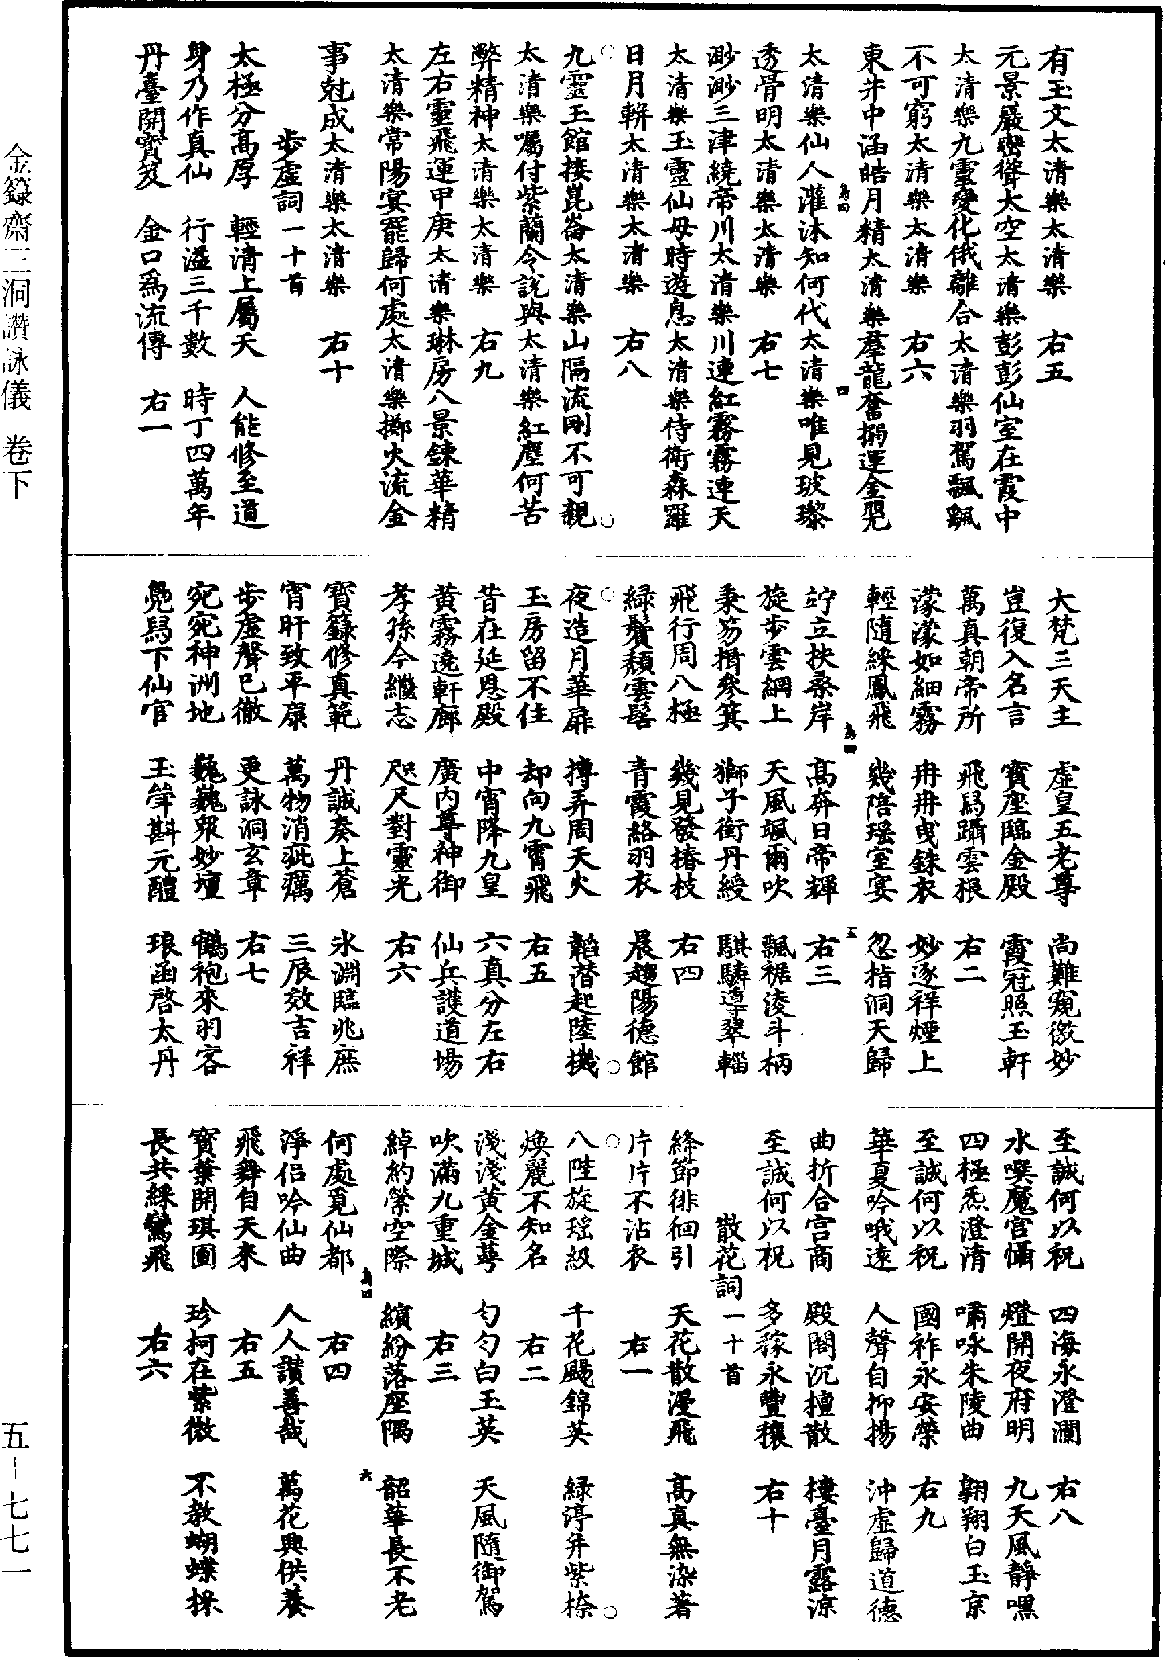 有玉文太清樂太清樂　右五
元景嚴巒聳大空太清樂彭彭仙室在霞中
太清樂九靈變化俄離合太清樂羽駕飄飄
不可窮太清樂太清樂　右六
東井中涵皓月精太清樂羣龍奮搦運金晃
太清樂仙人灌沐知何代太清樂唯見玻瓈
透骨明太清樂太清樂　右七
渺渺三津繞帝川太清樂川連紅霧霧連天
太清樂玉靈仙母時遊息太清樂侍衛森羅
日月軿太清樂太清樂　右八
九靈玉館接崑崙太清樂山隔流剛不可親
太清樂囑付紫蘭令說與太清樂紅塵何苦
弊精神太清樂太清樂　右九
左右靈飛運甲庚太清樂琳房八景鍊華精
太清樂常陽宴罷歸何處太清樂擲火流金
事尅成太清樂太清樂　右十
步虛詞一十首
太極分高厚　輕清上屬天　人能修至道
身乃作真仙　行溢三千數　時丁四萬年
丹臺開寶笈　金口為流傳　右一
大梵三天主　虛皇五老尊　尚難窺微妙
豈復入名言　寶座臨金殿　霞冠照玉軒
萬真朝帝所　飛舄躡雲根　右二
濛濛如細霧　冉冉曳銖衣　妙逐祥煙上
輕隨綵鳳飛　幾陪瑤室宴　忽指洞天歸
竚立扶桑岸　高奔日帝輝　右三
旋步雲綱上　天風颯爾吹　飄裾淩斗柄
秉笏揖參箕　獅子銜丹綬　騏驎導翠輜
飛行周八極　幾見發椿枝　右四
綠鬢頹雲髻　青霞絡羽衣　晨趨陽德館
夜造月華扉　摶弄周天火　韜潛起陸機
玉房留不住　却向九霄飛　右五
昔在延恩殿　中宵降九皇　六真分左右
黃霧遶軒廊　廣內尊神御　仙兵護道場
孝孫今繼志　咫尺對靈光　右六
寶籙修真範　丹誠奏上蒼　氷淵臨兆庶
宵旰致平康　萬物消疵癘　三辰效吉祥
步虛聲已徹　更詠洞玄章　右七
宛宛神洲地　巍巍眾妙壇　鶴袍來羽客
鳧舄下仙官　玉斝斟元醴　琅函啓太丹
至誠何以祝　四海永澄瀾　右八
水噀魔宫懾　燈開夜府明　九天風靜嘿
四極炁澄清　嘯咏朱陵曲　翱翔白玉京
至誠何以祝　國祚永安榮　右九
華夏吟哦遠　人聲自抑揚　沖虛歸道德
曲折合宫商　殿閣沉檀散　樓臺月露涼
至誠何以祝　多稼永豐穰　右十
散花詞一十首
絳節徘徊引　天花散漫飛　高真無染著
片片不沾衣　右一
八陛旋瑤級　千花颺錦英　綠渟并紫㮏
煥麗不知名　右二
淺淺黃金萼　勻勻白玉英　天風隨御駕
吹滿九重城　右三
綽約縈空際　繽紛落座隅　韶華長不老
何處覓仙都　右四
淨侶吟仙曲　人人讚善哉　萬花興供養
飛舞自天來　右五
寶葉開琪圃　珍柯在紫微　不教蝴蝶採
長共綵鸞飛　右六
金籙齋三洞讚詠儀　卷下
五－七七一